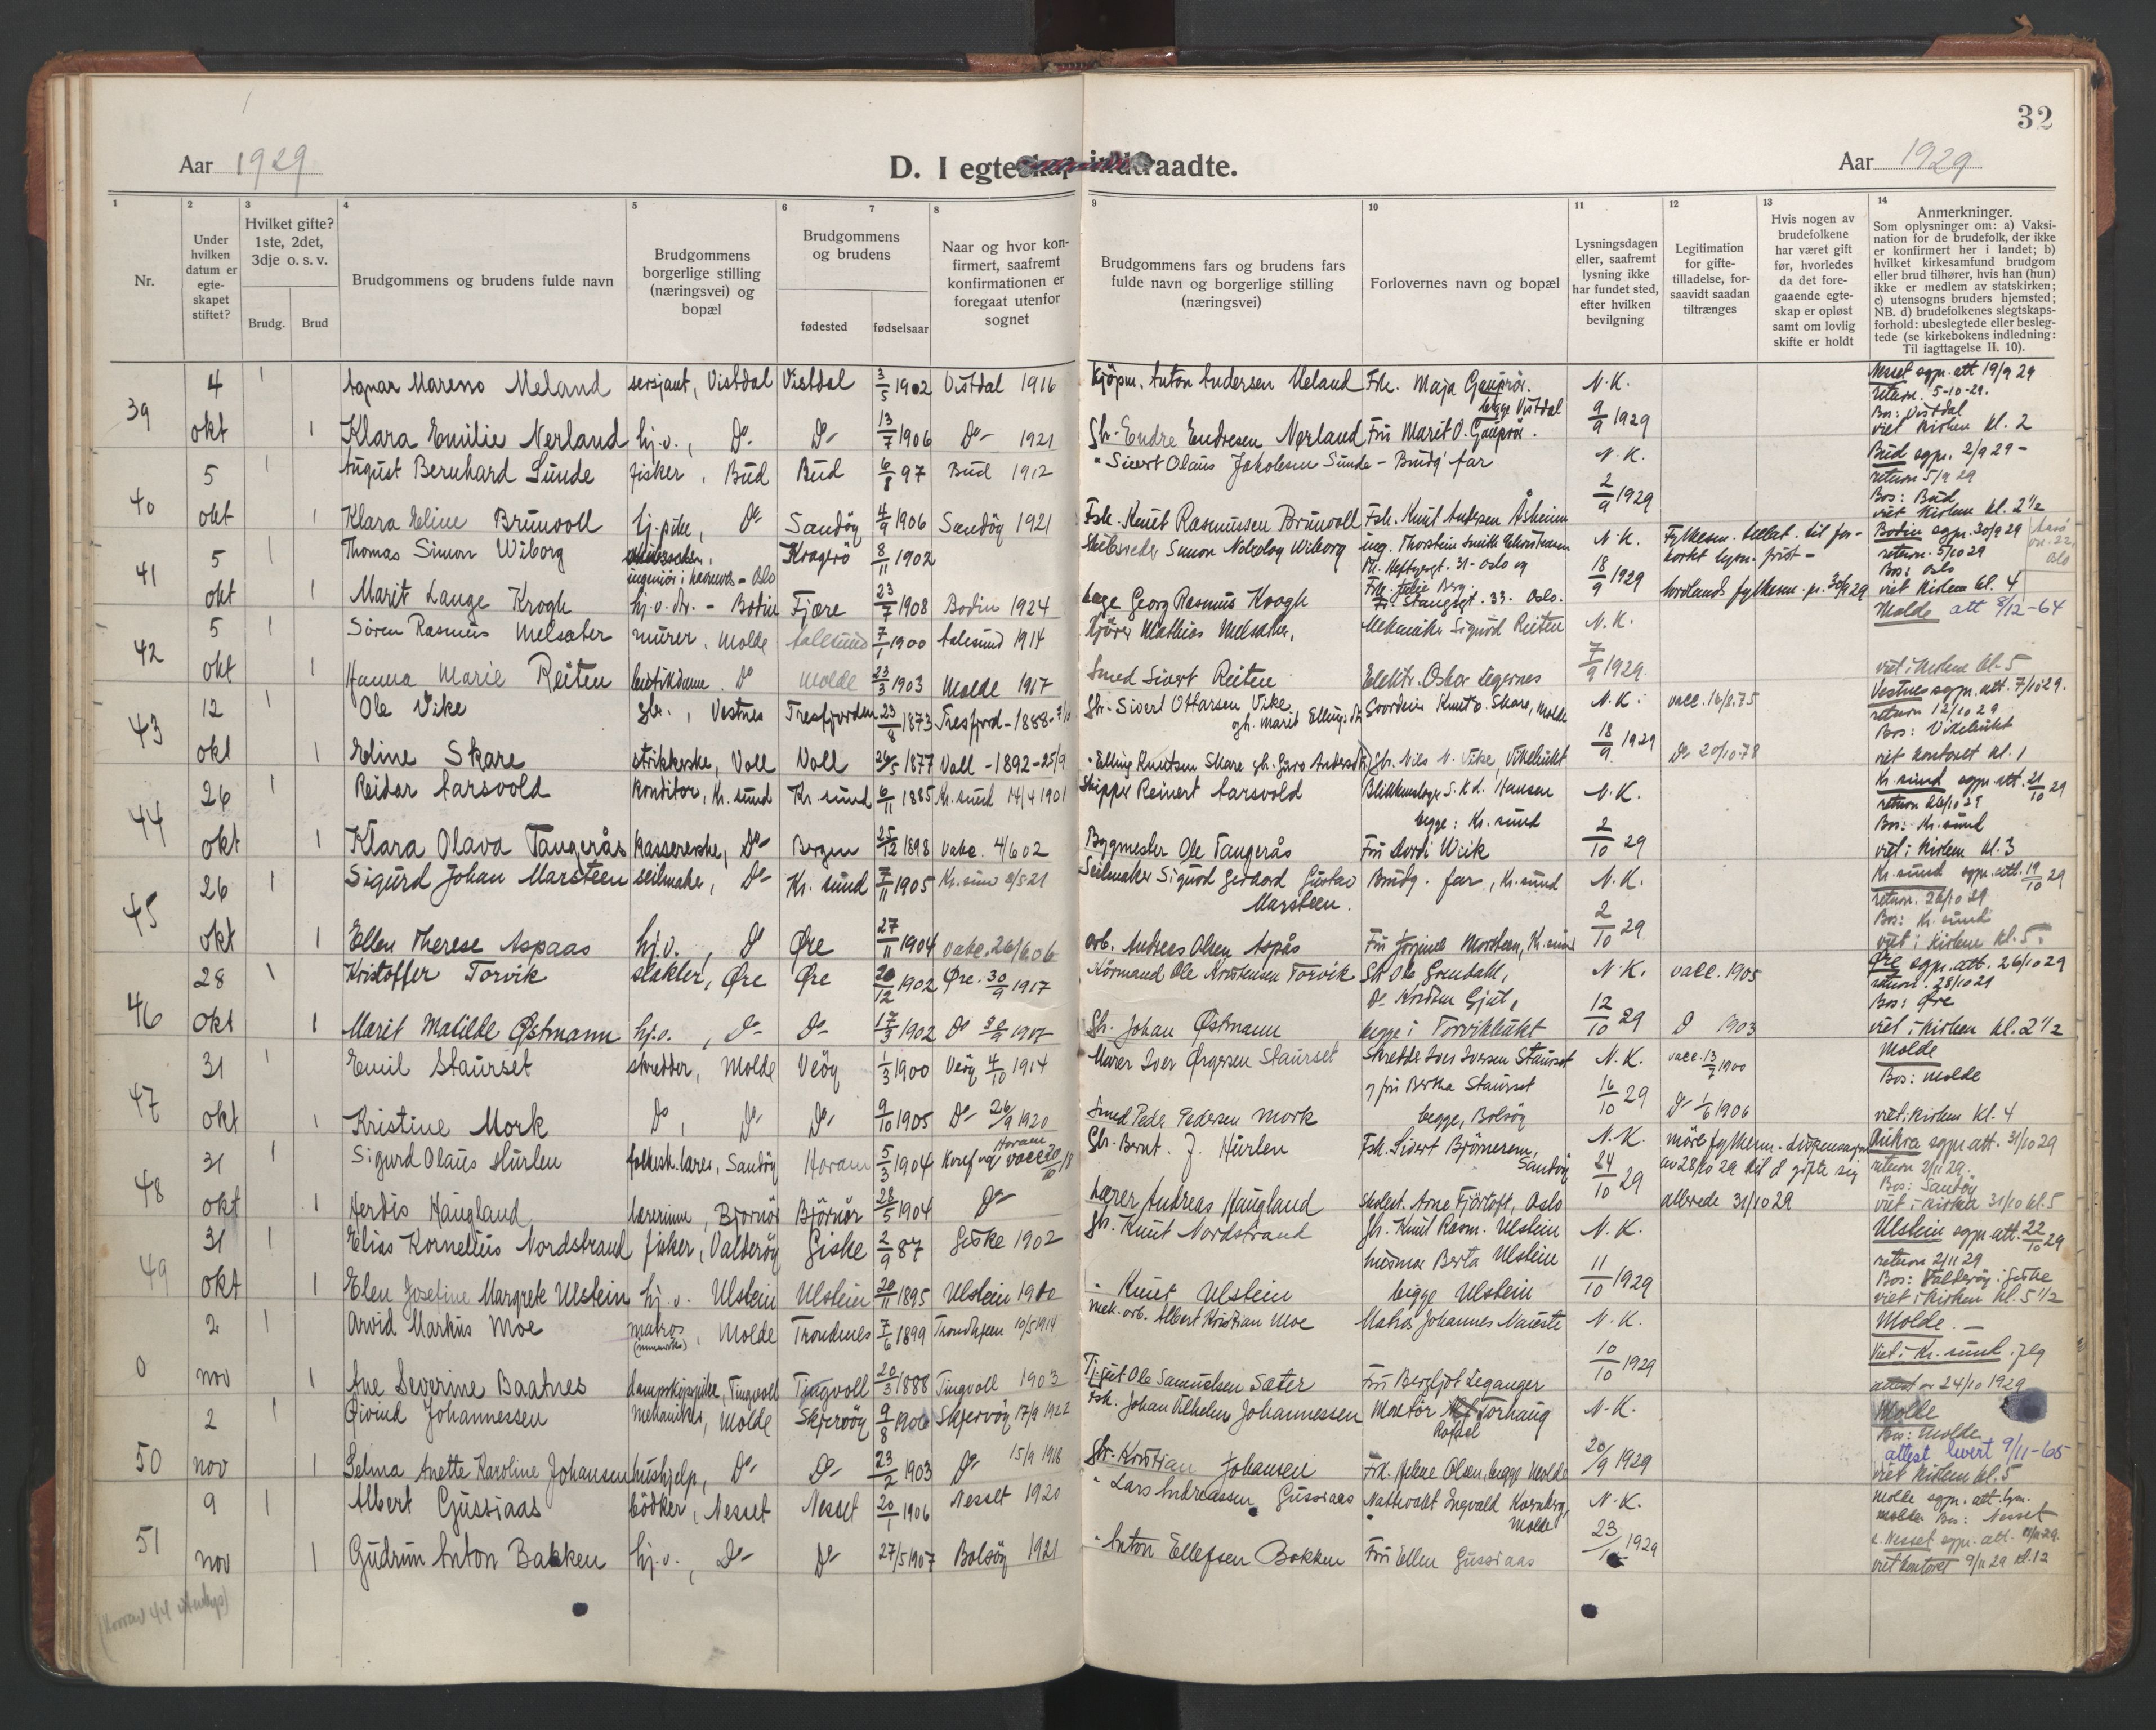 32
Aar 1929
D. I egteskap indtraadte.
Aar 1929
1
2
3
4
5
6
7
8
9
10
11
12
13
14
Nr.
Under hvilken datum er egte-skapet stiftet?
Hvilket gifte? 1ste, 2det, 3dje o. s. v.
Brudg.
Brud
Brudgommens og brudens fulde navn
Brudgommens borgerlige stilling (næringsvei) og bopæl
Brudgommens og brudens
fødested
fødselsaar
Naar og hvor kon-firmert, saafremt konfirmationen er foregaat utenfor sognet
Brudgommens fars og brudens fars fulde navn og borgerlige stilling (næringsvei)
Forlovernes navn og bopæl
Lysningsdagen eller, saafremt lysning ikke har fundet sted, efter hvilken bevilgning
Legitimation for gifte-tilladelse, for-saavidt saadan tiltrænges
Hvis nogen av brudefolkene har været gift før, hvorledes da det fore-gaaende egte-skap er opløst samt om lovlig skifte er holdt
Anmerkninger.
Som oplysninger om: a) Vaksi-nation for de brudefolk, der ikke er konfirmert her i landet; b) hvilket kirkesamfund brudgom eller brud tilhører, hvis han (hun) ikke er medlem av statskirken; c) utensogns bruders hjemsted; NB. d) brudefolkenes slegtskaps-forhold: ubeslegtede eller besleg-tede (se kirkebokens indledning: Til iagttagelse II. 10).
39 4 1 Agnar Mareno Meland sersjant, Vistdal Vistdal 3/5 1902 Vistdal 1916 Kjöpm. Anton Andersen Meland Frk. Maja Gauprör. N.K. Nesset sgpr. att 19/9 29
retur. 5-10-29.
begge Vistdal Bos: Vistdal
okt 1 Klara Emilie Nerland hj.v., Do Do 13/7 1906 Do 1921 Gbr. Endre Endresen Nerland Fru Marit O. Gauprör. 9/9 1929 viet Kirken kl. 2
40 5 1 August Bernhard Sunde fisker, Bud Bud 6/8 97 Bud 1912 " Sivert Olaus Jakobsen Sunde - Brudg' far N.K. Bud sgpr. 2/9 29 -
return 5/9 29
Bos: Bud
okt 1 Klara Eline Brunvoll hj.pike, Do Sandöy 4/9 1906 Sandöy 1921 Fsk. Knut Rasmussen Brunvoll Fsk. Knut Andersen Åsheim 2/9 1929 viet Kirken kl. 2 1/2
41 5 1 Thomas Simon Wiborg ingeniör i - Oslo Kragerö 8/11 1902 Skibsreder Simon Wiborg ing. Thorstein Smith N.K. Fylkesm. tillat. til for-kortet lysn. frist - Bodin sgpr. 30/9 29
return. 5/10 29
Bos: Oslo
okt 1 Marit Lange Krogh hj.v. dr. - Bodin Fjære 23/7 1908 Bodin 1924 læge Georg Rasmus Krogh Frk. Julie Berg. Stangsgt. 33. Oslo. 18/9 1929 Nordlands fylkesm. pr. 30/9 29 viet Kirken kl. 4
Molde att 8/12-64
42 5 1 Sören Rasmus Melsæter murer, Molde Aalesund 7/1 1900 Aalesund 1914 Kjörer Mathias Melsæter, Mekaniker Sigurd Reiten N.K.
okt 1 Hanna Marie Reiten butikdame. Do Molde 23/3 1903 Molde 1917 Smed Sivert Reiten Elektr. Oskar Legernes 7/9 1929 viet i Kirken kl. 5
43 12 1 Ole Vike gbr., Vestnes Tresfjorden 23/8 1873 Tresfjord - 1888 - 7/10 Gbr. Sivert Ottarsen Vike Knut O. Skare, Molde N.K. vacc. 16/8.75 Vestnes sgpr. att. 7/10 29.
return 12/10 29
Bos: Vikebukt
okt 1 Eline Skare strikkerske, Voll Voll 26/5 1877 Voll - 1892 - 25/9 " Elling Knutsen Skare Gbr. Nils N. Vike, Vikebukt 18/9 1929 Do 20/10.78 viet kontoret kl. 1
44 26 1 Reidar Aarsvold Konditor, Kr. sund Kr. sund 6/11 1885 Kr. sund 14/4 1901 Skipper Reinert Aarsvold Blikkenslager S. K. d. Hansen N.K. Kr. sund sgpr. att. 21/10 29
begge: Kr. sund return 26/10 29
Bos: Kr. sund
okt 1 Klara Olava Tangerås Kassererske, Do Bergen 25/12 1898 vakc. 4/6 02 Bygmester Ole Tangerås Fru Dordi Wiik 2/10 29 viet i Kirken kl. 3
45 26 1 Sigurd Johan Marsteen seilmaker, Do Kr. sund 7/11 1905 Kr. sund 8/5 21 Seilmaker Sigurd Gerhard Gustav Marsteen. Brudg. far, Kr. sund N.K. Kr. sund sgpr. att. 19/10 29
return. 26/10 29
Bos: Kr. sund
okt 1 Ellen Therese Aspaas hj.v., Do Øre 27/11 1904 vakc. 26/6.06 arb. Andreas Olsen Aspås Fru Jörgine Marsteen, Kr. sund 2/10 29 viet i Kirken kl. 5.
46 28 1 Kristoffer Torvik slakter, Øre Øre 20/12 1902 Øre. 30/9 1917 Ole Kristensen Torvik Gbr Ole Grendahl, N.K. vacc. 1905 Øre sgpr. att. 26/10 29
return. 28/10 29
Bos: Øre
okt 1 Marit Matilde Østmann hj.v., Do Do 17/3 1902 Do Gbr. Johan Østmann Do Kristen Gjul, begge i Torvikbukt 12/10 29 D 1903 viet i Kirken kl. 2 1/2
47 31 1 Emil Staurset skredder, Molde Veöy 1/3 1900 Veöy 4/10 1914 Murer Iver Ørgersen Staurset Skredder Iver Iversen Staurset N.K. vacc. 13/7 1900 Molde
og fru Berta Staurset Bos: Molde
okt 1 Kristine Mork Do, Do Do 9/10 1905 Do 26/9 1920 Smed Peder Pedersen Mork begge, Bolsöy 16/10 29 Do 1/6 1906 viet i Kirken kl. 4
48 31 1 Sigurd Olaus Hurlen folkesk.lærer, Sandöy Haram 5/3 1904 Haram Gbr. Bernt. J. Hurlen Fsk. Sivert Björnerem, Sandöy N.K. Möre fylkesm. dispensasjon av 28/10 29 til å gifte sig allerede 31/10 29 Aukra sgpr. att. 31/10 29
return 2/11 29.
Bos: Sandöy
okt 1 Herdis Haugland lærerinne, Bjørnör Björnör 28/5 1904 Do Lærer Andreas Haugland Arne Fjörtoft, Oslo 24/10 29 viet i Kirken 31/10 kl. 5
49 31 1 Elias Kornelius Nordstrand fisker, Valderöy Giske 2/9 87 Giske 1902 Gbr. Knut Nordstrand Gbr. Knut Rasm. Ulstein N.K. Ulstein sgpr. att. 22/10 29
husmor Berta Ulstein return 2/11 29
Bos: Valderöy i Giske
okt 1 Elen Josefine Margrete Ulstein hj.v. Ulstein Ulstein 20/11 1895 Ulstein 1910 " Knut Ulstein begge Ulstein 11/10 1929 viet i Kirken kl. 5 1/2
0 2 1 Arvid Markus Moe matros, Molde Trondenes 7/6 1899 Trondhjem 10/5 1914 mek. arb. Albert Kristian Moe Matros Johannes Naueste N.K. Molde. -
Viet i Kr. sund.
nov 1 Ane Severine Baatnes dampskipspike, Tingvoll Tingvoll 20/3 1888 Tingvoll 1903 Ole Samuelsen Sæter Fru Bergljot Leganger 10/10 1929 attest av 24/10 1929
50 2 1 Öivind Johannessen Mekaniker, Molde Skjervöy 9/8 1906 Skjervöy 17/9 1922 Fsk. Johan Vilhelm Johannessen Maskör Torhaug N.K. Molde
Bos: Molde
attest levert 9/11-65
nov 1 Selma Anette Karoline Johansen hushjelp, Do Do 23/2 1903 Do 15/9 1918 Gbr. Kristian Johansen Frk. Helene Olsen, begge Molde 20/9 1929 viet Kirken kl. 5
51 9 1 Albert Gussiaas bödker, Nesset Nesset 20/1 1906 Nesset 1920 " Lars Andreassen Gussiaas Nattevakt Ingvald Kornberg, Molde N.K. Molde sgpr. att. lysn.
Molde. Bos: Nesset
Nesset sgpr. att.
nov 1 Gudrun Anton Bakken hj.v., Do Do 27/5 1907 Bolsöy 1921 " Anton Ellefsen Bakken Fru Ellen Gussiaas 23/10 1929 viet kontoret 9/11 29 kl. 12